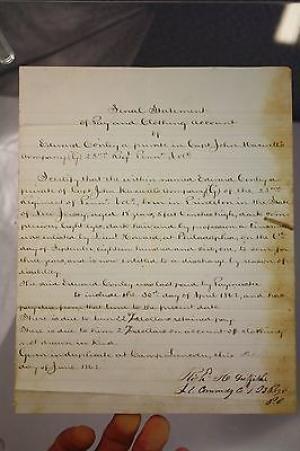 Final Statement
of Pay and Clothing Account
of
Edward Conley a private in Capt John
Company (G) 23rd Regt Penna Vols.
I certify that the within named Edward Conley a
private of Capt John Company (G) of the 23rd
regiment of Penna Vols, born in Princeton in the State
of New Jersey, aged 18 years, feet inches high, dark com-
plexion, eyes, dark hair, and by profession a
was enlisted by Lieut at Philadelphia, on the
day of September, eighteen hundred and sixty one, to serve for
three years, and is now entitled to a discharge by reason of
disability.
The said Edward Conley was last paid by Paymaster
to include the 30th day of April 1862, and has
pay due from that time to the present date
There is due to him 22 dollars retained pay.
There is due to him 2 dollars on account of clothing
not drawn in kind.
Given in duplicate at Camp Lincoln, this
day of June 1862.